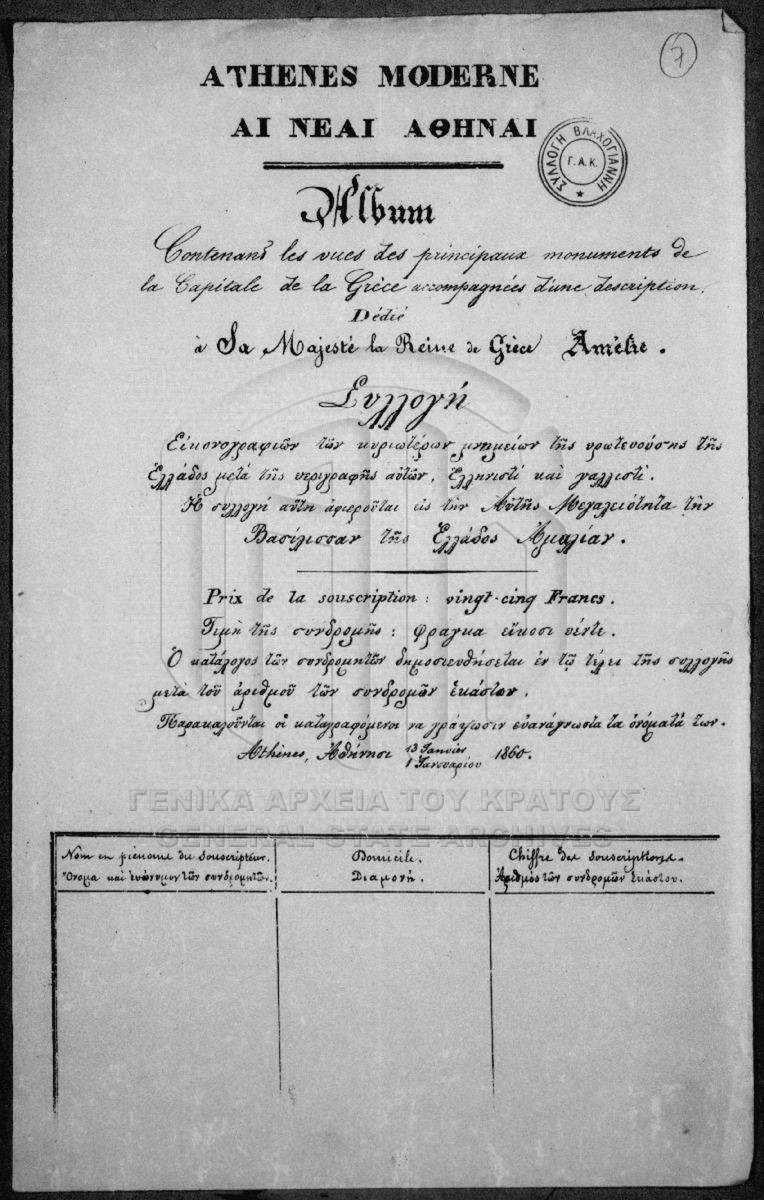 7
ATHENES MODERNE
ΑΙ ΝΕΑΙ ΑΘΗΝΑΙ
ΣΥΛΛΟΓΗ ΒΛΑΧΟΓΙΑΝΝΗ
Γ.Α.Κ.
Album
Contenant les vues des principaux monuments de
la Capitale de la Grèce accompagnées d'une description.
Dédié
à Sa Majesté la Reine de Grèce Amélie.
Συλλογή
Εἰκονογραφιῶν τῶν κυριωτέρων μνημείων τῆς πρωτευούσης τῆς
Ἑλλάδος μετά τῆς περιγραφῆς αὐτῶν, Ἑλληνιστί καί γαλλιστί.
Ἡ συλλογή αὕτη ἀφιεροῦται εἰς τήν Αὐτῆς Μεγαλειότητα τήν
Βασίλισσαν τῆς Ἑλλάδος Ἀμαλίαν.
Prix de la souscription: vingt-cinq Francs.
Τιμή τῆς συνδρομῆς: φραγκα εἴκοσι πέντε.
Ὁ κατάλογος τῶν συνδρομητῶν δημοσιευθήσεται ἐν τῷ τέλει τῆς συλλογῆς
μετά τοῦ ἀριθμοῦ τῶν συνδρομῶν ἑκάστου.
Παρακαλοῦνται οἱ καταγραφόμενοι να γράψωσιν εὐανάγνωστα τα ὀνόματά των.
Athènes, Ἀθήνησι 13 Janvier / 1 Ἰανουαρίου 1860.
ΓΕΝΙΚΑ ΑΡΧΕΙΑ ΤΟΥ ΚΡΑΤΟΥΣ
GENERAL STATE ARCHIVES
Nom en prénome du Souscripteur. Domicile. Chiffre des souscriptions.
Ὄνομα καί ἐπώνυμον τῶν συνδρομητῶν. Διαμονή. Ἀριθμός τῶν συνδρομῶν ἑκάστου.